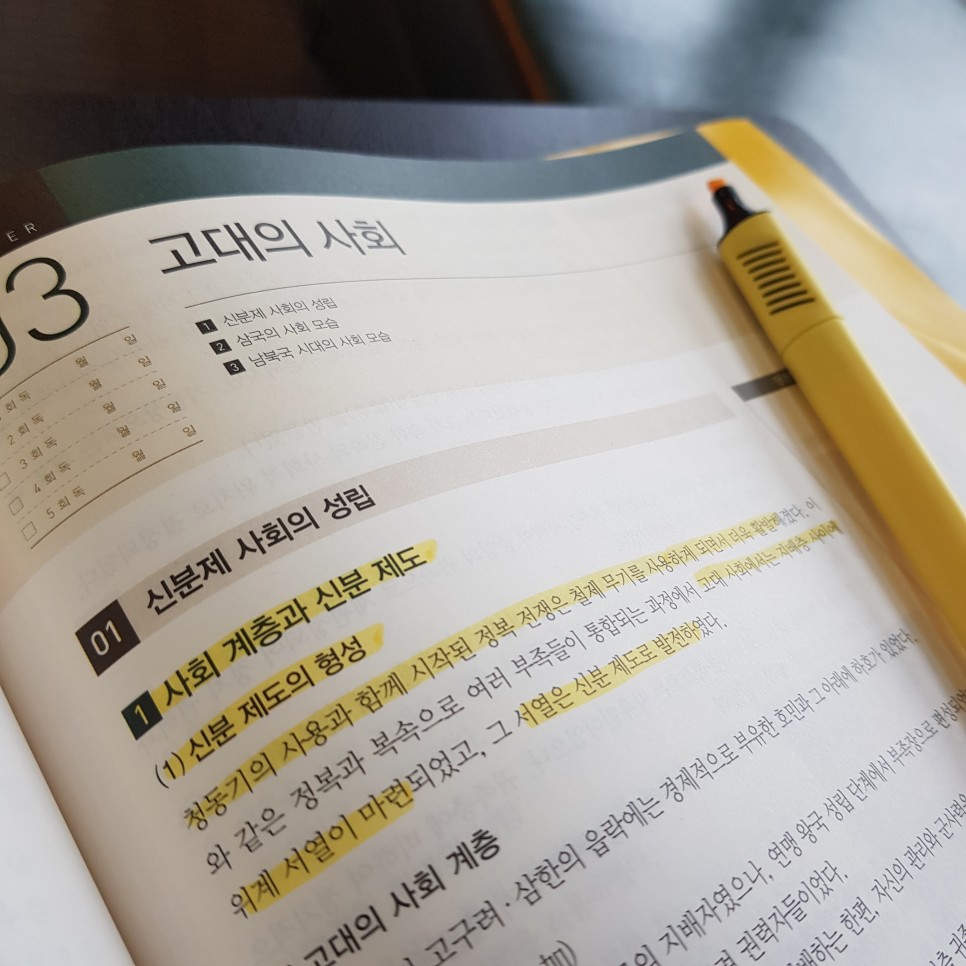 ER
03
고대의 사회
1 신분제 사회의 성립
2 삼국의 사회 모습
3 남북국 시대의 사회 모습
회독 월 일
2회독 월 일
3회독 월 일
4회독 월 일
5회독 월 일
01 신분제 사회의 성립
1 사회 계층과 신분 제도
(1) 신분 제도의 형성
청동기의 사용과 함께 시작된 정복 전쟁은 철제 무기를 사용하게 되면서 더욱 활발해졌다. 이
와 같은 정복과 복속으로 여러 부족들이 통합되는 과정에서 고대 사회에서는 지배층 사이에
위계 서열이 마련되었고, 그 서열은 신분 제도로 발전하였다.
고대의 사회 계층
고구려·삼한의 읍락에는 경제적으로 부유한 호민과 그 아래에 하호가 있었다.
의 지배자였으나, 연맹 왕국 성립 단계에서 부족장으로 편성되어
권력자들이었다.
배하는 한편, 자신의 관리와 군사력을